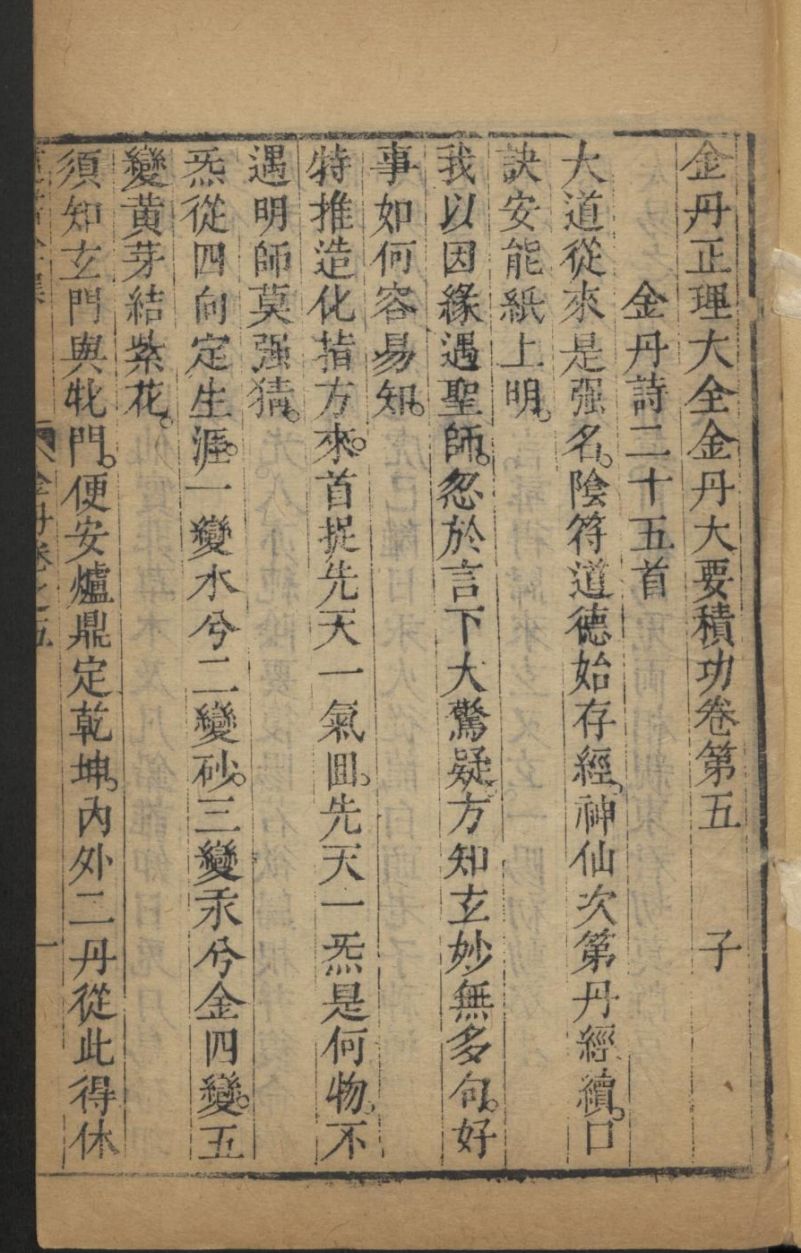 金丹正理大全金丹大要積功卷第五　子
金丹詩二十五首
大道從來是强名。陰符道德始存經。神仙次第丹經續。口
訣安能紙上明。
我以因緣遇聖師。忽於言下大驚疑。方知玄妙無多句。好
事如何容易知。
特推造化指方來。首捉先天一氣囬。先天一炁是何物。不
遇明師莫强猜。
炁從四向定生涯。一變水兮二變砂。三變汞兮金四變。五
變黄芽結紫花。
須知玄門與牝門。便安爐鼎定乾坤。內外二丹從此得。休
金丹卷之五　一